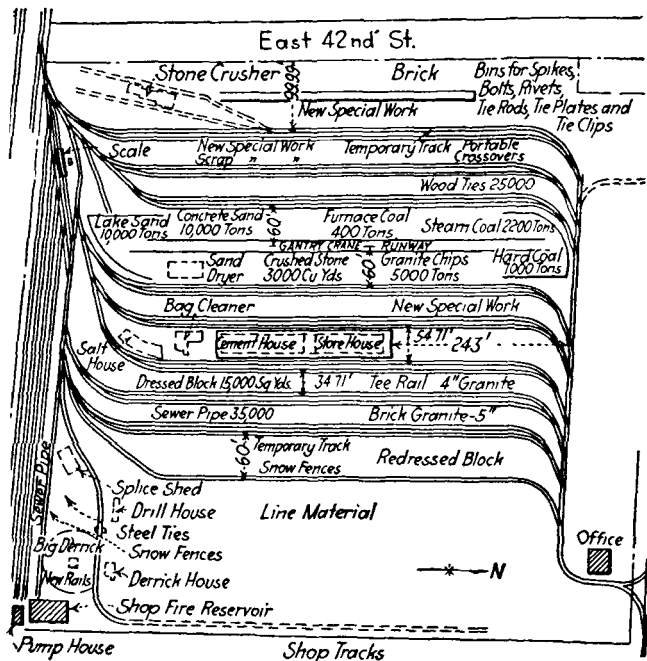 East 42nd St.
Stone Crusher
Brick
Bins for Spikes,
Bolts, Rivets,
Tie Rods, Tie Plates and
Tie Clips
New Special Work
Scale
New Special Work
Scrap " "
Temporary Track
Portable
Crossovers
Wood Ties 25000
Lake Sand
10,000 Tons
Concrete Sand
10,000 Tons
60'
Furnace Coal
400 Tons
Steam Coal 2200 Tons
GANTRY CRANE RUNWAY
Sand
Dryer
Crushed Stone
3000 Cu Yds
60'
Granite Chips
5000 Tons
Hard Coal
1000 Tons
Bag Cleaner
New Special Work
Salt
House
Cement House
Store House
54.71'
243'
Dressed Block 15,000 Sq Yds
34.71'
Tee Rail
4" Granite
Sewer Pipe 35,000
Brick Granite-5"
60'
Temporary Track
Snow Fences
Redressed Block
Sewer Pipe
Splice Shed
Drill House
Steel Ties
Snow Fences
Line Material
Big Derrick
New Rails
Derrick House
N
Office
Shop Fire Reservoir
Pump House
Shop Tracks